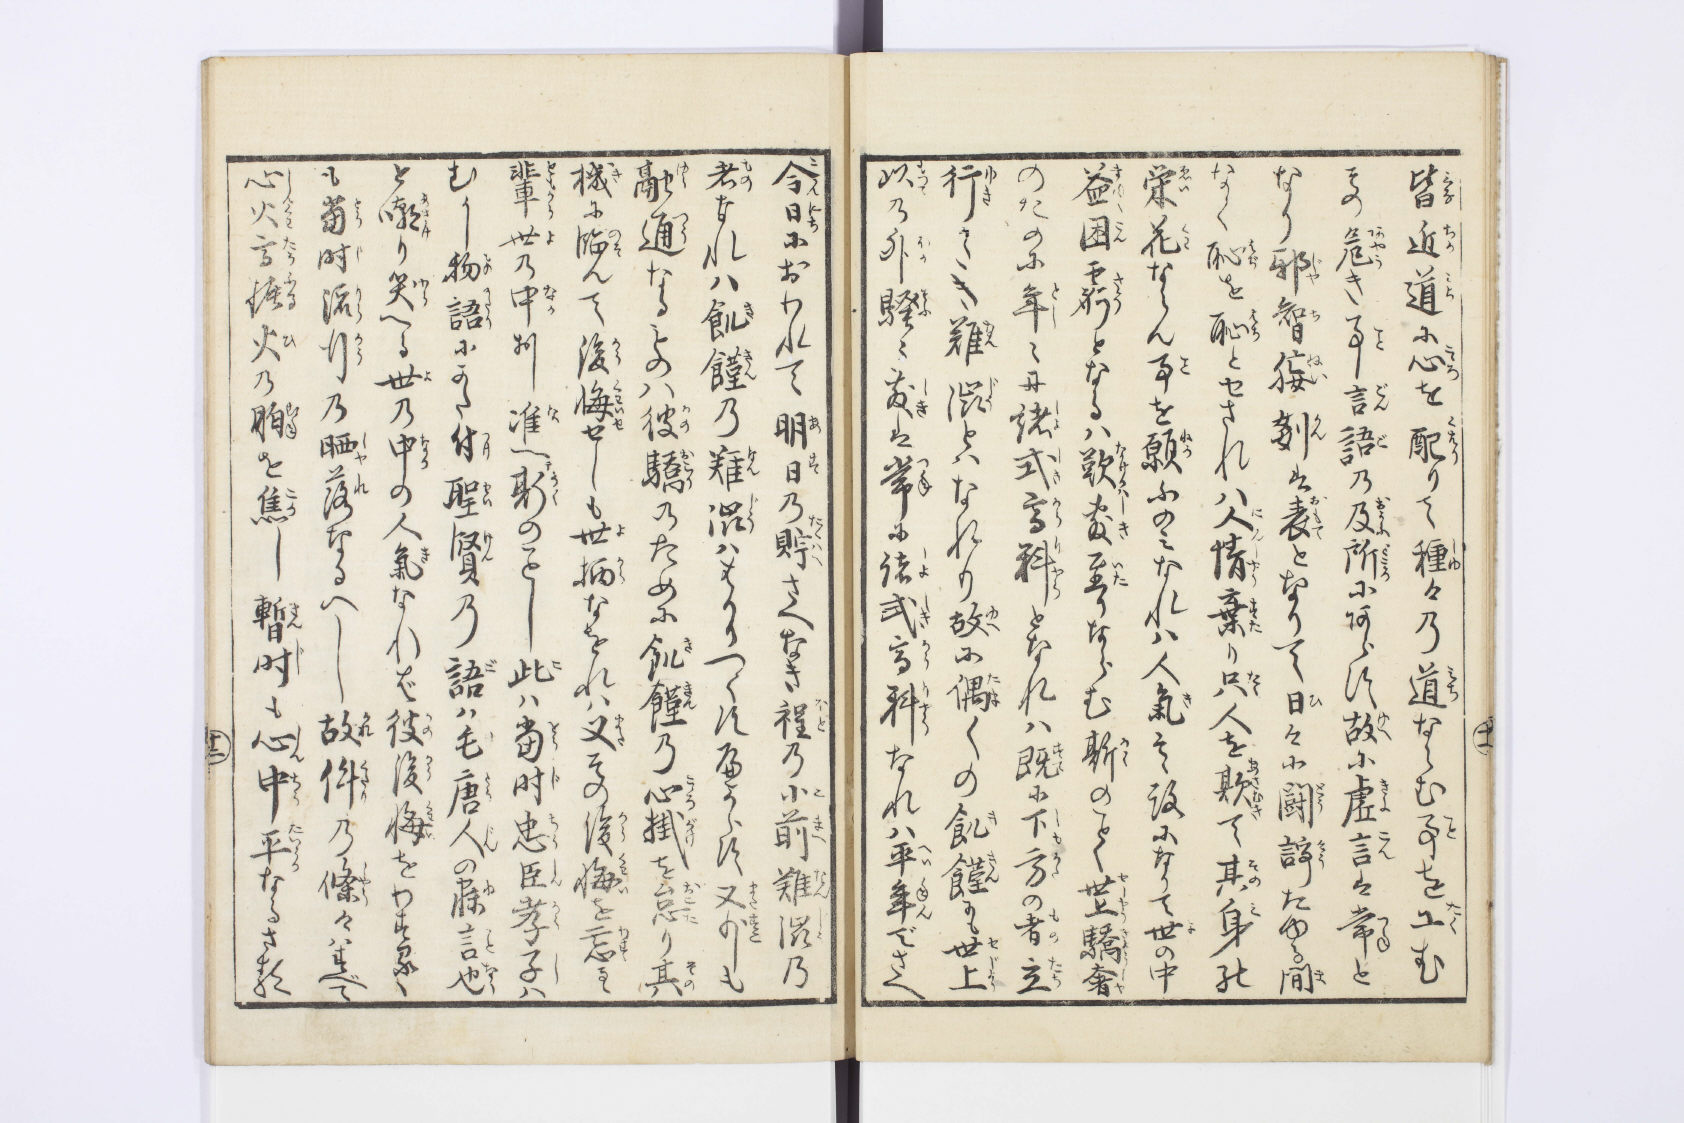 皆近道に心を配りて種々乃道ならむ事を工む
その危き事言語乃及所に阿らす故に虚言は常と
なり邪智侫剣は表となりて日々に闘諍たゆる間
なく恥を恥とせされハ人情棄り只人を欺て其身の
栄花ならん事を願ふのみなれハ人氣も設になりて世の中
益困窮となるハ歎敷至りならむ斯のことく世上驕奢
のたのに年々に諸式高料となれハ既に下方の者立
行ぬき難澁とハなれり故に偶々の飢饉にも世上
此乃外騒々敷は常に諸式高料なれハ平年でさへ
今日におわれて明日乃貯さへなき程乃小前難澁乃
者なれハ飢饉乃難澁ハもとより一ト通ならす又少しも
融通なるものハ彼驕乃ために飢饉乃心掛を怠り其
機に臨んて後悔せしも世柄なをれハ又その後悔を忘るゝ
輩世乃中に准へ斯のことし此ハ当时忠臣孝子ハ
むかし物語に有て付聖賢乃語ハ毛唐人の寐言也
と嘲り笑へる世乃中の人氣なれば彼後悔をわすれ
も當时流行乃晒落なるへし故件乃條々ハすべて
心火高振火乃胸を焦し暫时も心中平なるさる
十一
十二